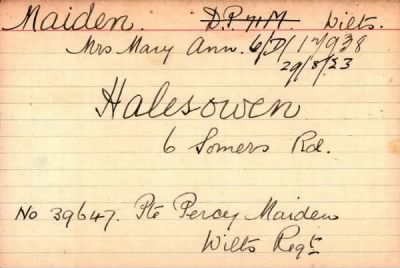 Maiden. D.P. 71M. Wilts.
Mrs Mary Ann. 6/D/17938
29/8/23
Halesowen
6 Somers Rd.
No 39647. Pte Percy Maiden
Wilts Regt